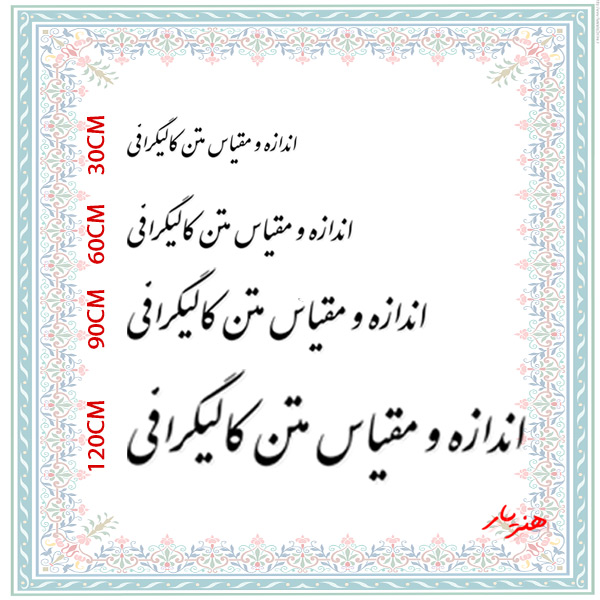 30CM
اندازه و مقیاس متن کالیگرافی
60CM
اندازه و مقیاس متن کالیگرافی
90CM
اندازه و مقیاس متن کالیگرافی
120CM
اندازه و مقیاس متن کالیگرافی
هنریار